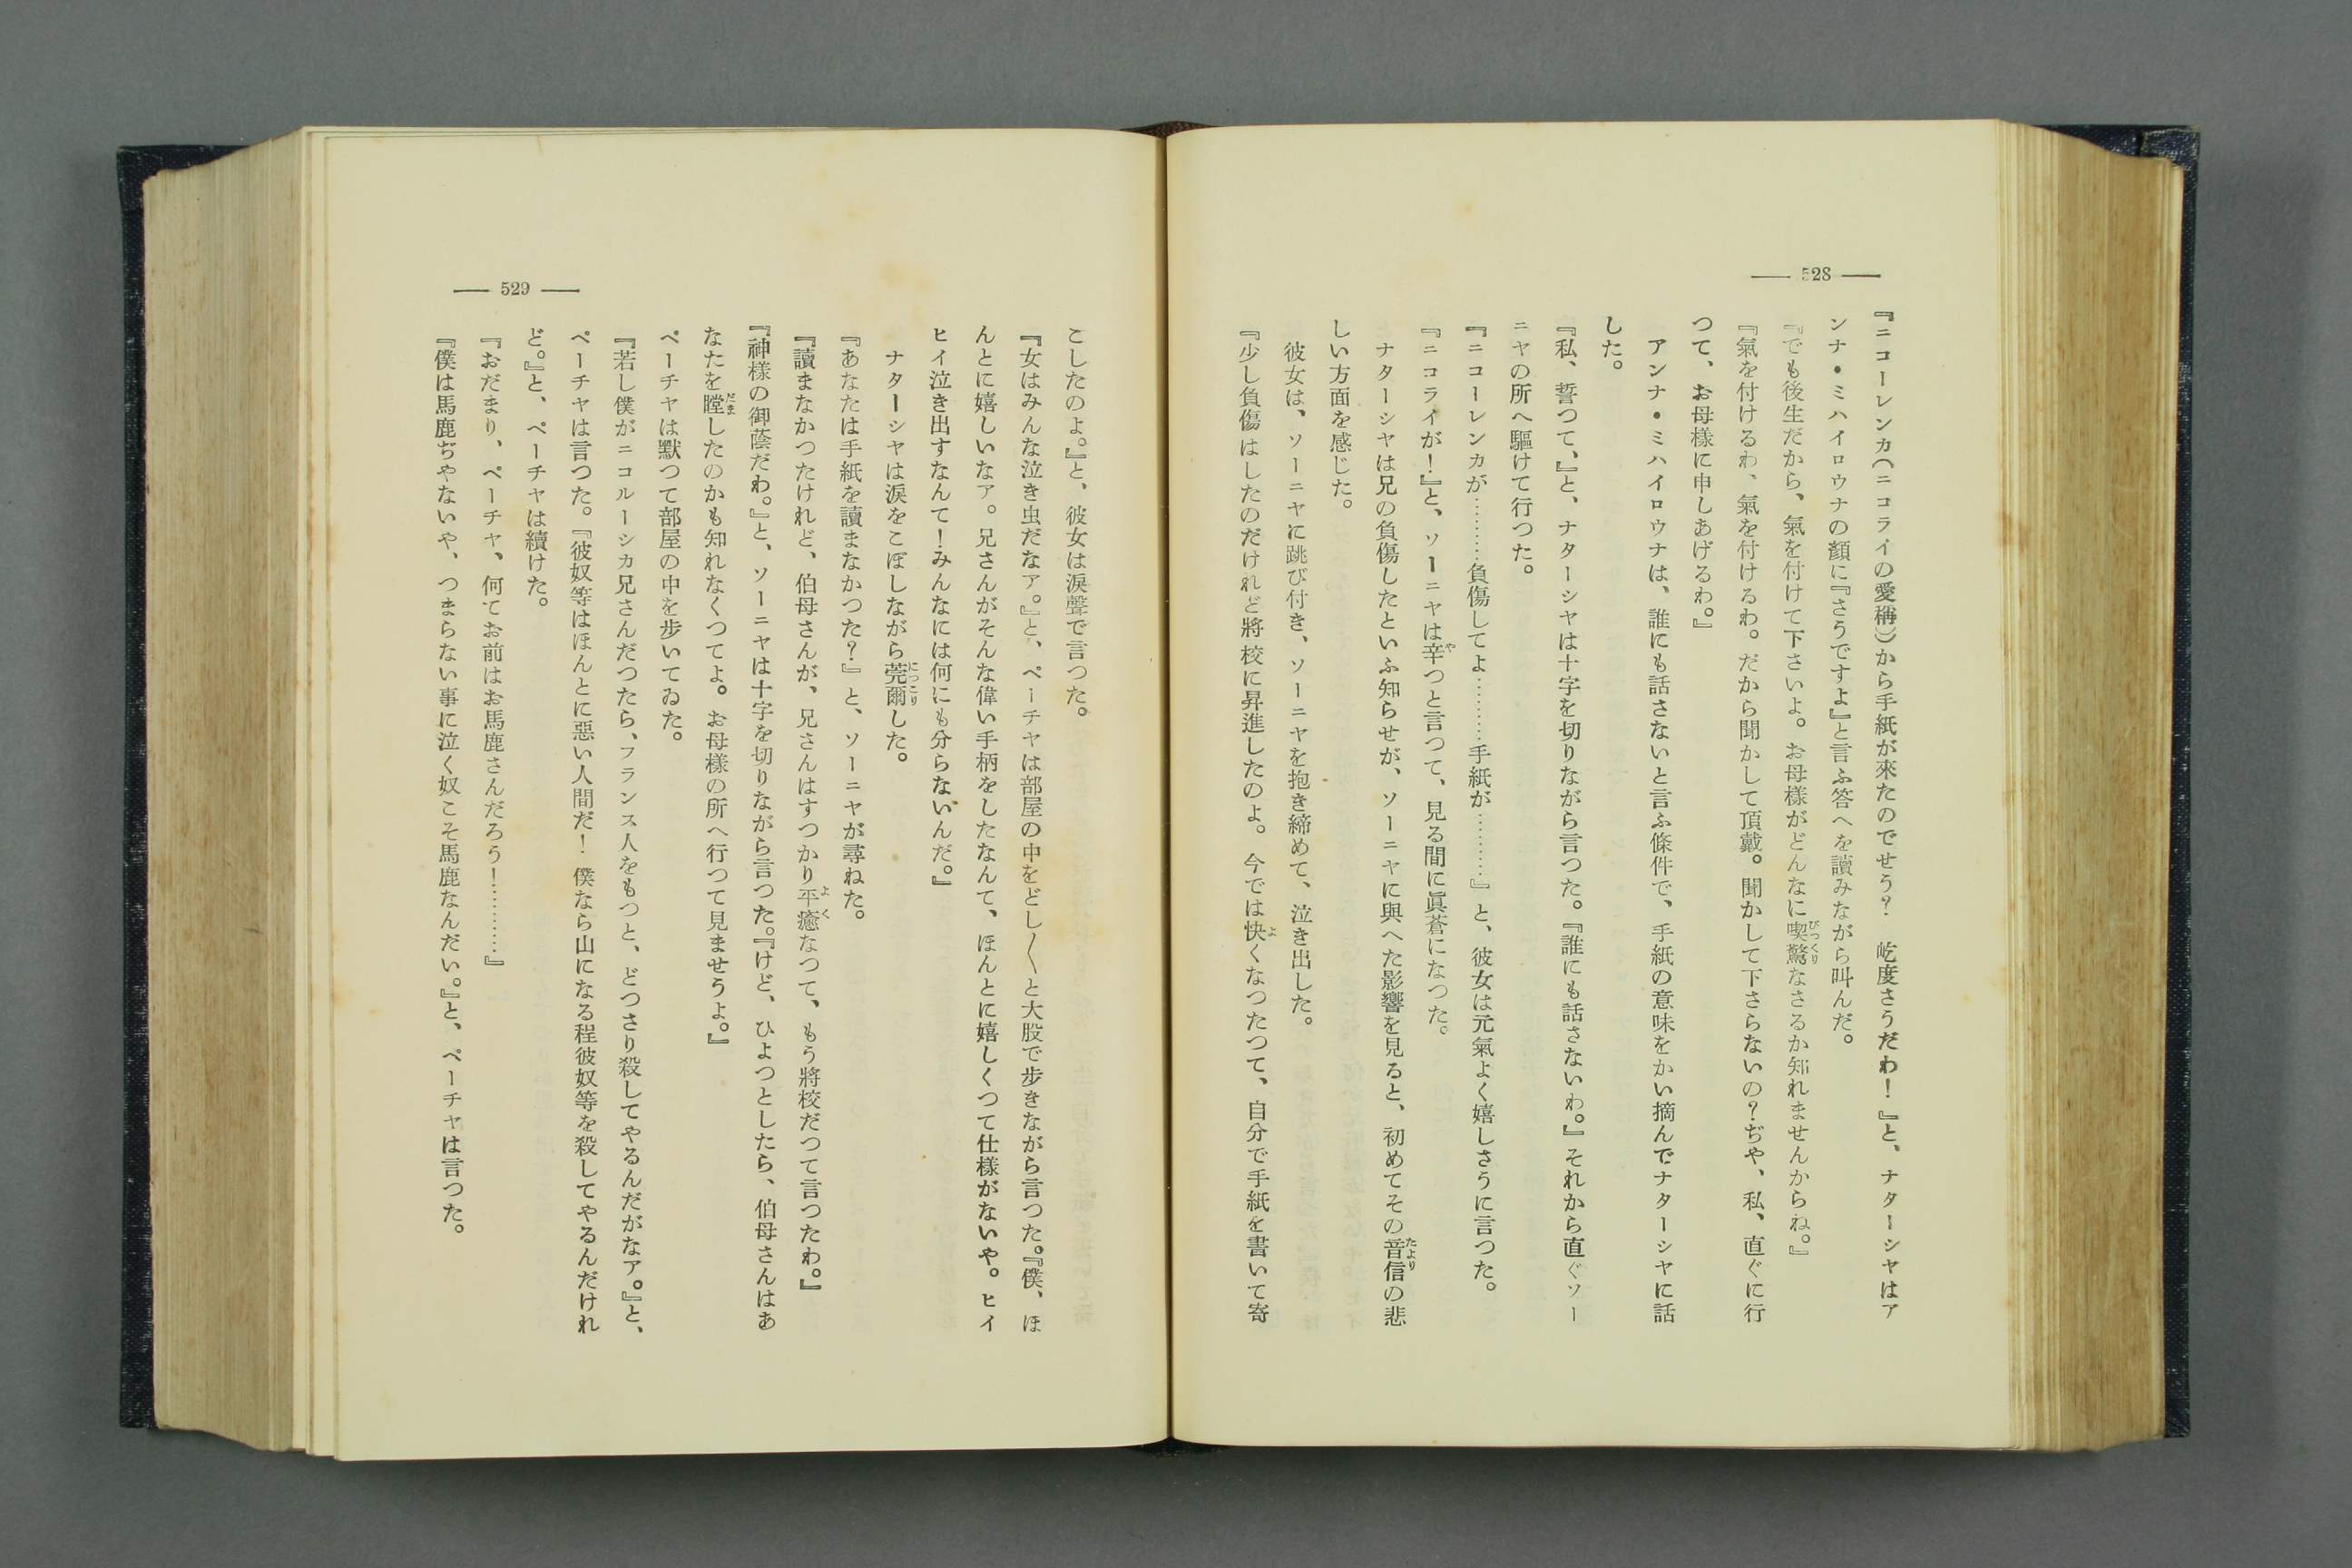 528
『ニコーレンカ(ニコライの愛稱)から手紙が來たのでせう？　屹度さうだわ！』と、ナターシヤはア
ンナ・ミハイロウナの顏に『さうですよ』と言ふ答へを讀みながら叫んだ。
『でも後生だから、氣を付けて下さいよ。お母樣がどんなに喫驚なさるか知れませんからね。』
『氣を付けるわ、氣を付けるわ。だから聞かして頂戴。聞かして下さらないの？ぢや、私、直ぐに行
つて、お母樣に申しあげるわ。』
アンナ・ミハイロウナは、誰にも話さないと言ふ條件で、手紙の意味をかい摘んでナターシヤに話
した。
『私、誓つて、』と、ナターシヤは十字を切りながら言つた。『誰にも話さないわ。』それから直ぐソー
ニヤの所へ驅けて行つた。
『ニコーレンカが…………負傷してよ…………手紙が…………』と、彼女は元氣よく嬉しさうに言つた。
『ニコライが！』と、ソーニヤは辛つと言つて、見る間に眞蒼になつた。
ナターシヤは兄の負傷したといふ知らせが、ソーニヤに與へた影響を見ると、初めてその音信の悲
しい方面を感じた。
彼女は、ソーニヤに跳び付き、ソーニヤを抱き締めて、泣き出した。
『少し負傷はしたのだけれど將校に昇進したのよ。今では快くなつたつて、自分で手紙を書いて寄
529
こしたのよ。』と、彼女は涙聲で言つた。
『女はみんな泣き虫だなア。』と、ペーチヤは部屋の中をどし〱と大股で歩きながら言つた。『僕、ほ
んとに嬉しいなア。兄さんがそんな偉い手柄をしたなんて、ほんとに嬉しくつて仕樣がないや。ヒイ
ヒイ泣き出すなんて！みんなには何にも分らないんだ。』
ナターシヤは涙をこぼしながら莞爾した。
『あなたは手紙を讀まなかつた？』と、ソーニヤが尋ねた。
『讀まなかつたけれど、伯母さんが、兄さんはすつかり平癒なつて、もう將校だつて言つたわ。』
『神樣の御蔭だわ。』と、ソーニヤは十字を切りながら言つた。『けど、ひよつとしたら、伯母さんはあ
なたを瞠したのかも知れなくつてよ。お母樣の所へ行つて見ませうよ。』
ペーチヤは默つて部屋の中を歩いてゐた。
『若し僕がニコルーシカ兄さんだつたら、フランス人をもつと、どつさり殺してやるんだがなア。』と、
ペーチヤは言つた。『彼奴等はほんとに惡い人間だ！　僕なら山になる程彼奴等を殺してやるんだけれ
ど。』と、ペーチヤは續けた。
『おだまり、ペーチヤ、何てお前はお馬鹿さんだろう！…………』
『僕は馬鹿ぢやないや、つまらない事に泣く奴こそ馬鹿なんだい。』と、ペーチヤは言つた。